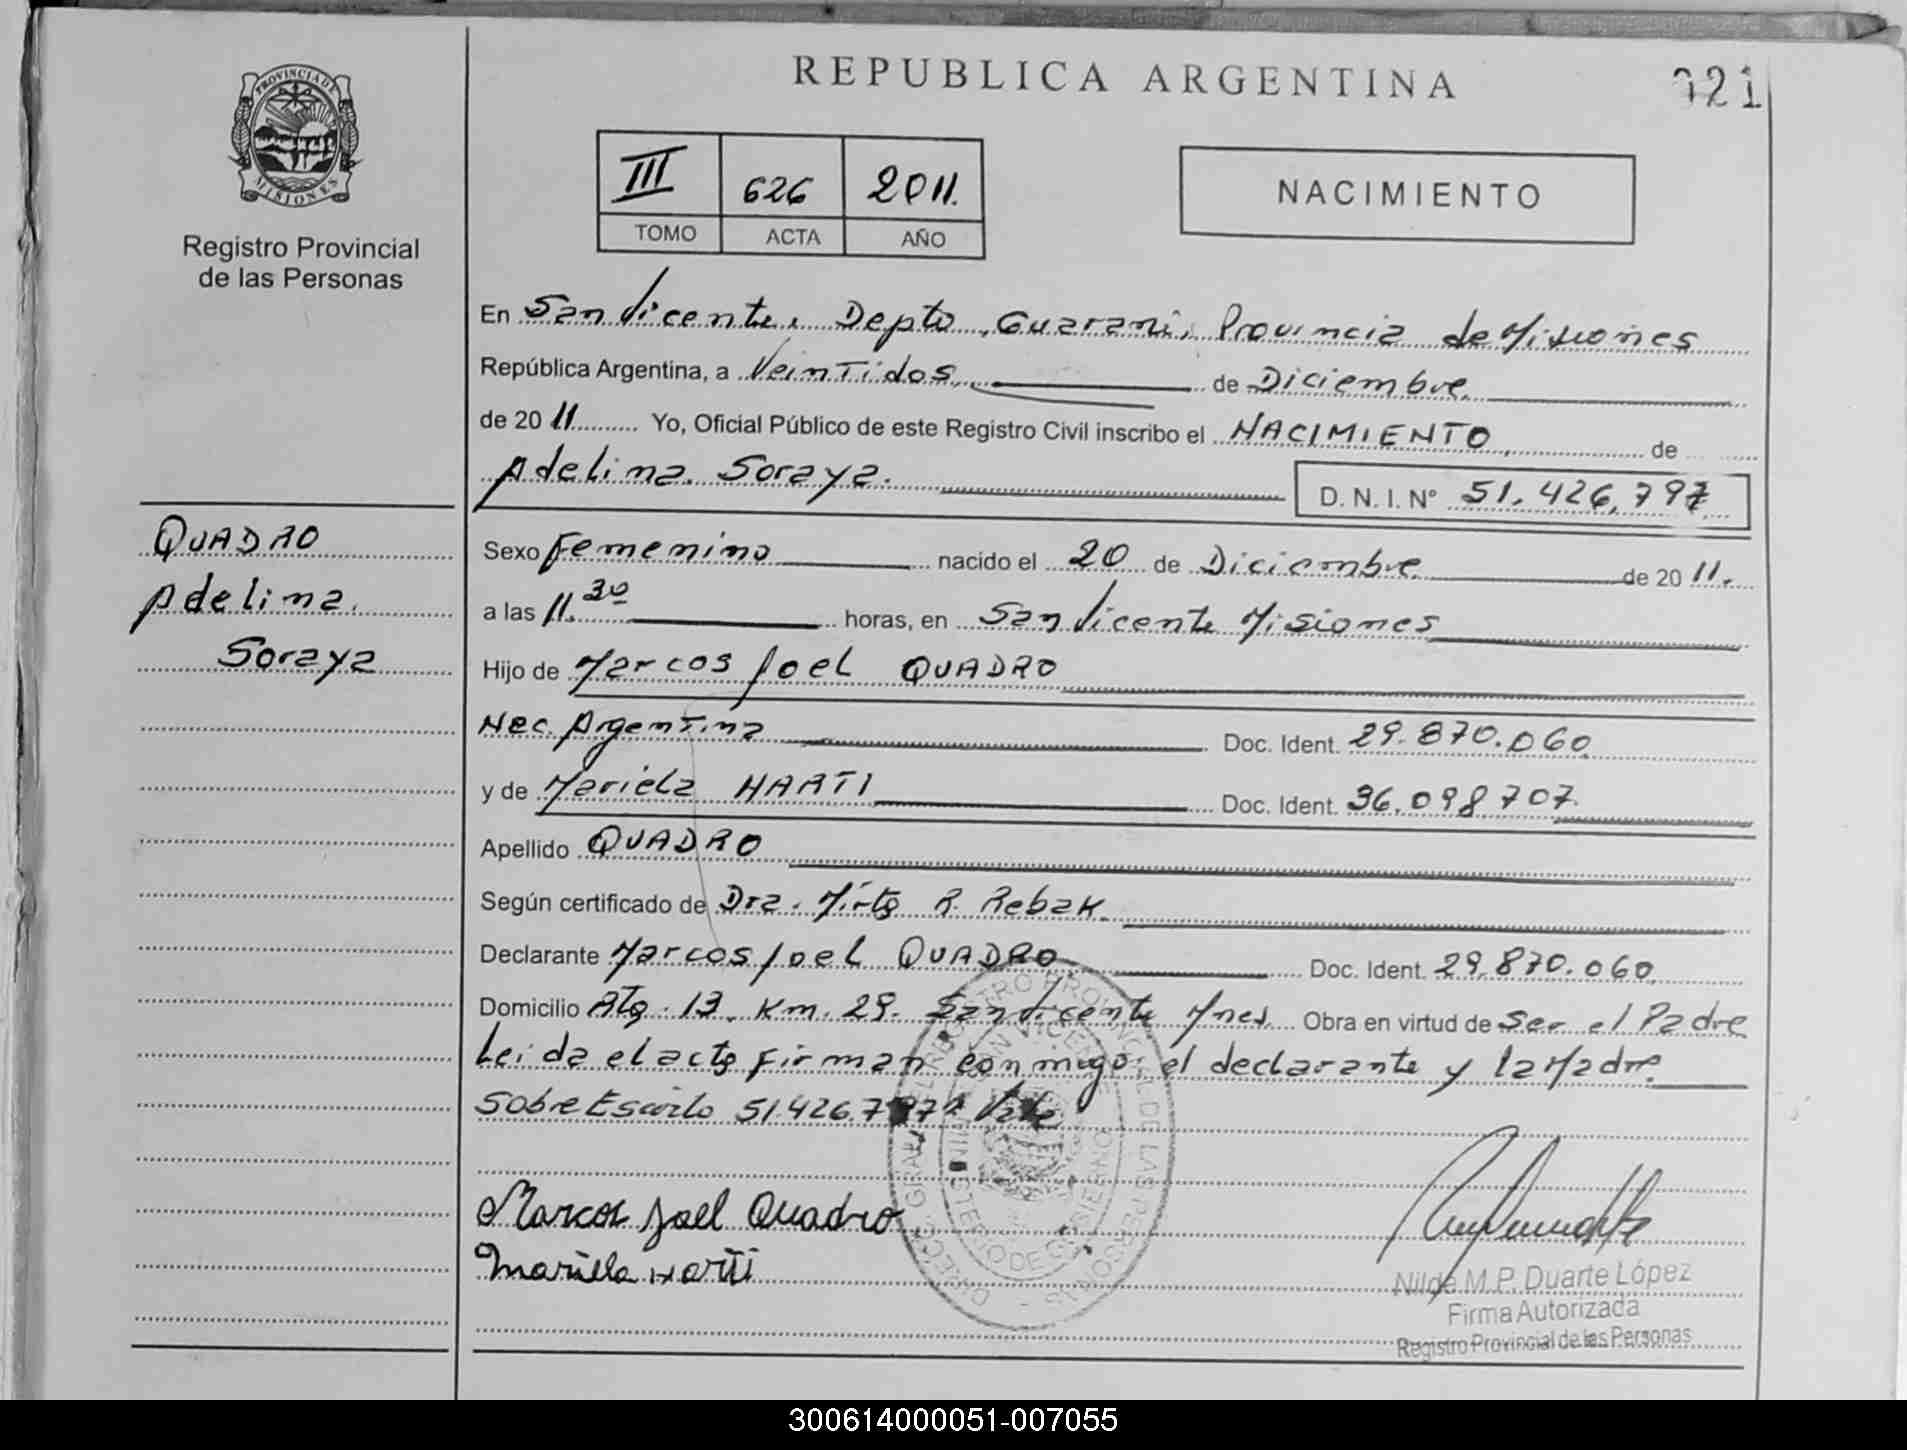 REPUBLICA ARGENTINA
021
PROVINCIA DE
MISIONES
Registro Provincial
de las Personas
III 626 2011.
TOMO ACTA AÑO
NACIMIENTO
En San Vicente, Depto Guaraní, Provincia de Misiones
República Argentina, a Veintidos de Diciembre
de 2011 Yo, Oficial Público de este Registro Civil inscribo el NACIMIENTO de
Adelina Soraya. D. N. I. N° 51.426.797
QUADRO
Adelina
Soraya
Sexo Femenino nacido el 20 de Diciembre de 2011.
a las 11.30 horas, en San Vicente Misiones
Hijo de Marcos Joel QUADRO
Nac. Argentina Doc. Ident. 29.870.060
y de Mariela HARTI Doc. Ident. 36.098.707.
Apellido QUADRO
Según certificado de Dra. Mirta R. Rebak
Declarante Marcos Joel QUADRO Doc. Ident. 29.870.060
Domicilio Rta. 13 Km. 29. San Vicente Mnes Obra en virtud de Ser el Padre
Leida el acta firman conmigo el declarante y la Madre
Sobre Escrito 51.426.797 Vale
Marcos Joel Quadro
Mariela Harti
Nilda M.P. Duarte López
Firma Autorizada
Registro Provincial de las Personas
300614000051-007055